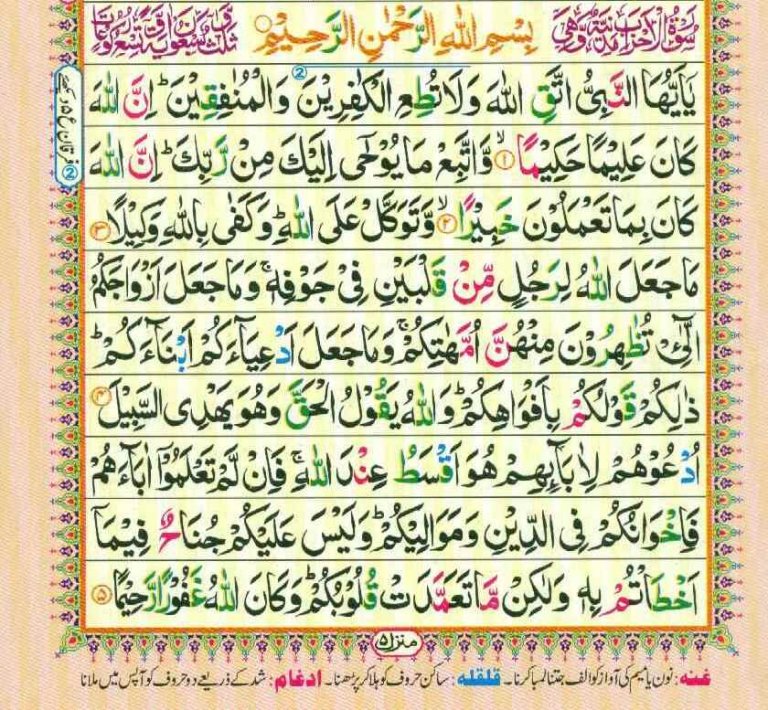 سُوۡرَةُ الۡاَحۡزَابِ مَدَنِيَّةٌ وَّهِىَ
بِسۡمِ اللهِ الرَّحۡمٰنِ الرَّحِيۡمِ
ثَلٰثٌ وَّسَبۡعُوۡنَ اٰيَةً وَّتِسۡعُ رُكُوۡعَاتٍ
يٰۤاَيُّهَا النَّبِىُّ اتَّقِ اللهَ وَلَا تُطِعِ الۡكٰفِرِيۡنَ وَالۡمُنٰفِقِيۡنَ ؕ اِنَّ اللهَ
كَانَ عَلِيۡمًا حَكِيۡمًا ۙ‏﴿۱﴾ وَّاتَّبِعۡ مَا يُوۡحٰٓى اِلَيۡكَ مِنۡ رَّبِّكَ ؕ اِنَّ اللهَ
كَانَ بِمَا تَعۡمَلُوۡنَ خَبِيۡرًا ۙ‏﴿۲﴾ وَّتَوَكَّلۡ عَلَى اللهِ ؕ وَكَفٰى بِاللهِ وَكِيۡلًا ﴿۳﴾
مَا جَعَلَ اللهُ لِرَجُلٍ مِّنۡ قَلۡبَيۡنِ فِىۡ جَوۡفِهٖ ۚ وَمَا جَعَلَ اَزۡوَاجَكُمُ
الّٰٓـئِىۡ تُظٰهِرُوۡنَ مِنۡهُنَّ اُمَّهٰتِكُمۡ ۚ وَمَا جَعَلَ اَدۡعِيَآءَكُمۡ اَبۡنَآءَكُمۡ ؕ
ذٰ لِكُمۡ قَوۡلُـكُمۡ بِاَفۡوَاهِكُمۡ ؕ وَاللهُ يَقُوۡلُ الۡحَقَّ وَهُوَ يَهۡدِى السَّبِيۡلَ ﴿۴﴾
اُدۡعُوۡهُمۡ لِاٰبَآئِهِمۡ هُوَ اَقۡسَطُ عِنۡدَ اللهِ ۚ فَاِنۡ لَّمۡ تَعۡلَمُوۡۤا اٰبَآءَهُمۡ
فَاِخۡوَانُكُمۡ فِى الدِّيۡنِ وَمَوَالِيۡكُمۡ ؕ وَ لَيۡسَ عَلَيۡكُمۡ جُنَاحٌ فِيۡمَاۤ
اَخۡطَاۡتُمۡ بِهٖ وَلٰكِنۡ مَّا تَعَمَّدَتۡ قُلُوۡبُكُمۡ ؕ وَكَانَ اللهُ غَفُوۡرًا رَّحِيۡمًا ﴿۵﴾
منزل ۵
غنه: نون یا میم کی آواز کو الف جتنا لمبا کرنا۔ قلقله: ساکن حروف کو ہلا کر پڑھنا۔ ادغام: شد کے ذریعے دو حروف کو آپس میں ملانا